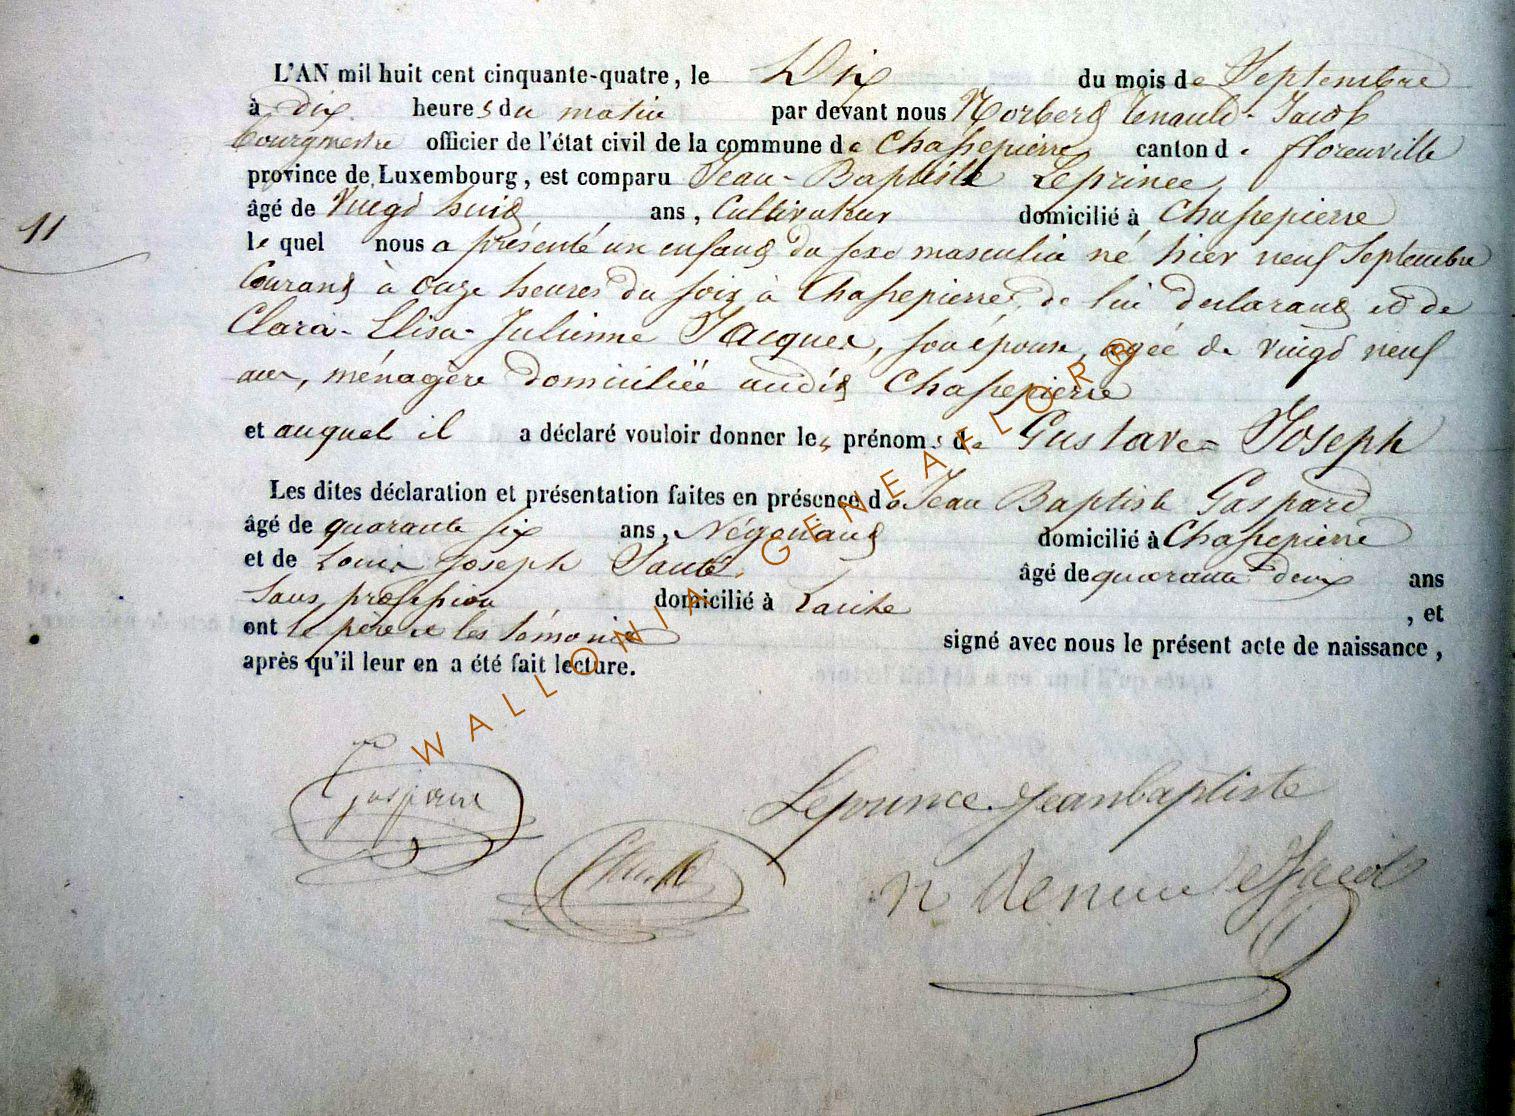 L'AN mil huit cent cinquante-quatre, le Dix du mois de Septembre
à dix heures du matin par devant nous Norbert Renauld-Jacob
bourgmestre officier de l'état civil de la commune de Chassepierre canton de florenville
province de Luxembourg, est comparu Jean-Baptiste Leprince
âgé de Vingt huit ans, Cultivateur domicilié à Chassepierre
11
lequel nous a présenté un enfant du sexe masculin né hier neuf Septembre
Courant à onze heures du soir à Chassepierre, de lui déclarant et de
Clara-Elisa-Julienne Jacques, son épouse, agée de vingt neuf
ans, ménagère domiciliée audit Chassepierre
et auquel il a déclaré vouloir donner les prénoms de Gustave-Joseph
Les dites déclaration et présentation faites en présence de Jean Baptiste Gaspard
âgé de quarante six ans, Négociant domicilié à Chassepierre
et de Louis Joseph âgé de quarante deux ans
Sans profession domicilié à Laiche , et
ont le père et les témoins signé avec nous le présent acte de naissance,
après qu'il leur en a été fait lecture.
Gaspard
Leprince Jeanbaptiste
WALLONIA GENEAFLORE